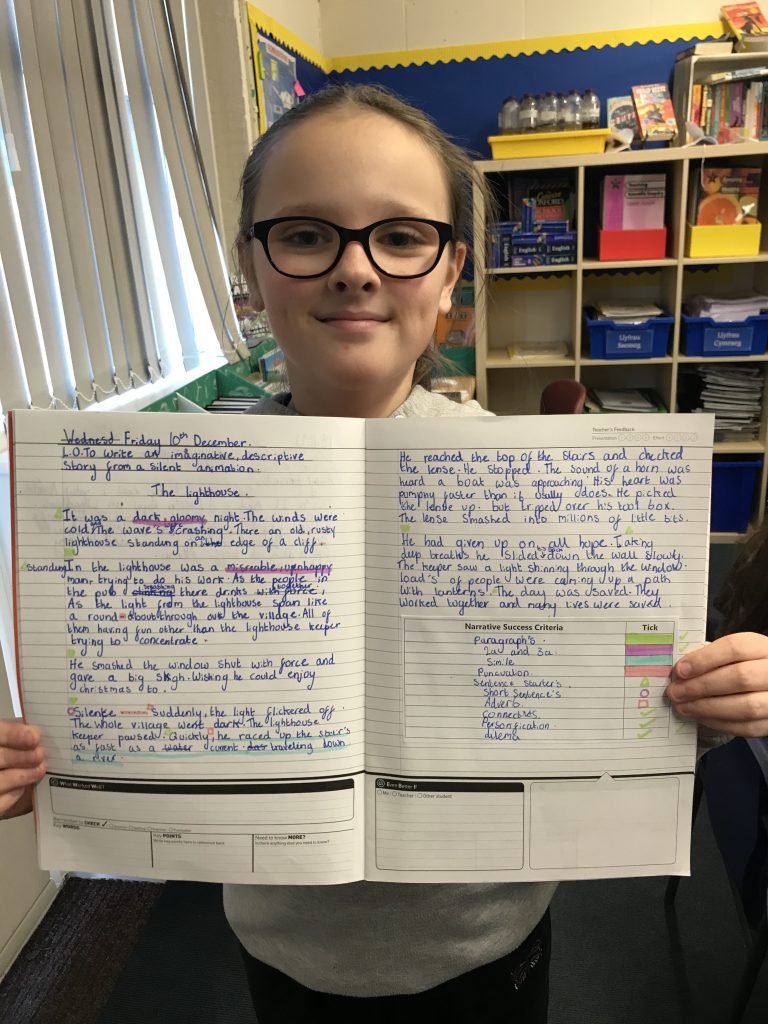 Wednesd Friday 10th December.
L.O.To write an imaginative, descriptive
story from a silent animation.
The lighthouse.
It was a dark, gloomy, night. The winds were
cold, The wave's "crashing". There an old, rusty
lighthouse standung on the an edge of a cliff.
Standing In the lighthouse was a misreable, unhappy
man, trying to do his work. As the people in
the pub clinking smashing there drinks with force, together,
As the light from the lighthouse span like
a round about through out the village. All of
them having fun other than the lighthouse keeper
trying to concentrate.
He smashed the window shut with force and
gave a big sigh. Wishing he could enjoy
christmas to.
Silence suddenly, the light flickered off.
The whole village went dark. The lighthouse
keeper paused. Quickly, he raced up the stair's
as fast as a water current traveling down
a river.
He reached the top of the stairs and checked
the lense. He stopped. The sound of a horn was
heard a boat was approaching. His heart was
pumping faster than it usally does. He picked
the lense up. but tripped over his tool box.
The lense smashed into millions of little bits.
He had given up on all hope. Taking
deep breaths he slided his back down the wall slowly.
The keeper saw a light shinning through the window.
load's of people were coming up a path
with lanterns! The day was saved. They
worked together and many lives were saved.
Narrative Success Criteria
Tick
Paragraph's.
2a and 3a.
Simile
Puncuation.
Sentence starter's.
Short sentence's.
Adverb.
Connectives.
Personification.
dilema.
Teacher's Feedback
Presentation
Effort
What Worked Well?
Even Better If
Me
Teacher
Other student
Remember to CHECK
Key WORDS:
Key POINTS
Write key points here to reference back
Need to know MORE?
Is there anything else you need to know?
English
English
OXFORD
Llyfrau
Saesneg
Llyfrau
Cymraeg